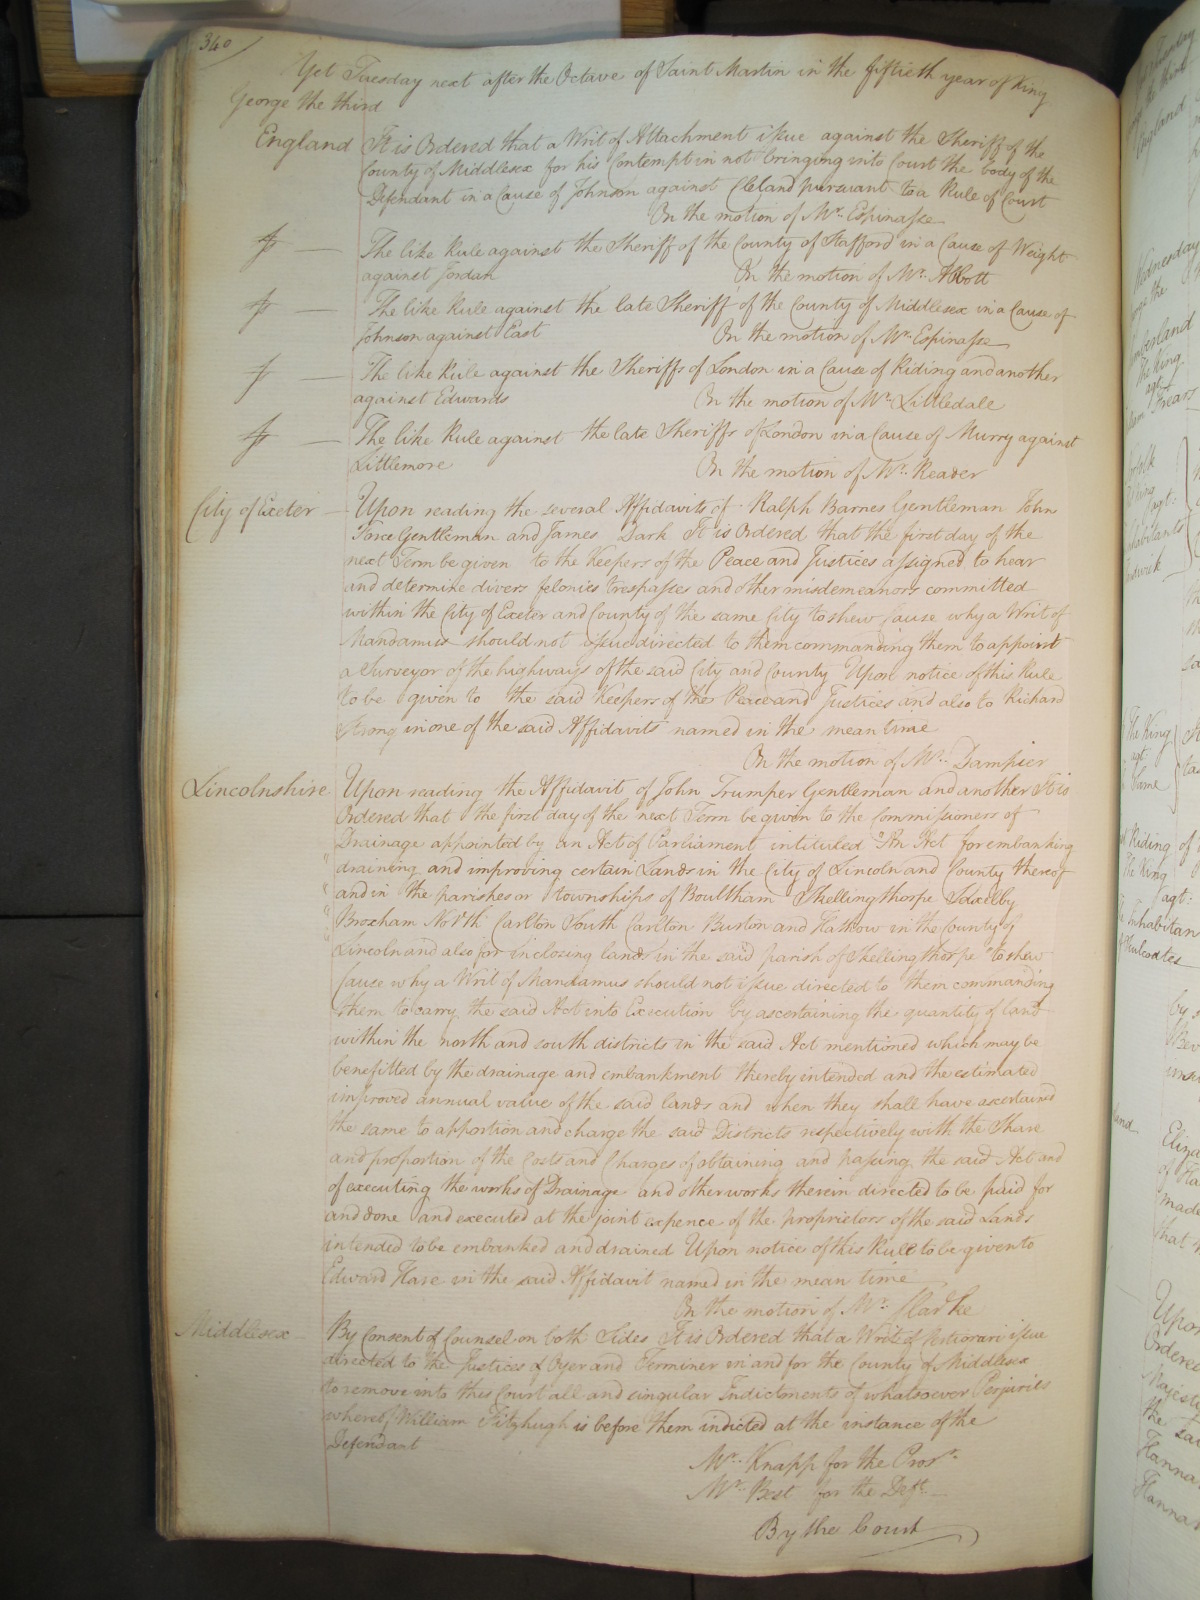 340
Yet Tuesday next after the Octave of Saint Martin in the fiftieth year of King
George the third
England It is Ordered that a Writ of Attachment issue against the Sheriff of the
County of Middlesex for his Contempt in not bringing into Court the body of the
Defendant in a Cause of Johnson against Cleland pursuant to a Rule of Court
On the motion of Mr. Espinasse
The like Rule against the Sheriff of the County of Stafford in a Cause of Weight
against Jordan On the motion of Mr. Abbott
The like Rule against the late Sheriff of the County of Middlesex in a Cause of
Johnson against East On the motion of Mr. Espinasse
The like Rule against the Sheriffs of London in a Cause of Riding and another
against Edwards On the motion of Mr. Littledale
The like Rule against the late Sheriffs of London in a Cause of Murry against
Littlemore On the motion of Mr. Reader
City of Exeter Upon reading the several Affidavits of Ralph Barnes Gentleman John
Gentleman and James Dark It is Ordered that the first day of the
next Term be given to the Keepers of the Peace and Justices assigned to hear
and determine divers felonies trespasses and other misdemeanors committed
within the City of Exeter and County of the same City to shew Cause why a Writ of
Mandamus should not issue directed to them commanding them to appoint
a Surveyor of the highways of the said City and County Upon notice of this Rule
to be given to the said Keepers of the Peace and Justices and also to Richard
Strong in one of the said Affidavits named in the mean time
On the motion of Mr. Dampier
Lincolnshire Upon reading the Affidavit of John Trumper Gentleman and another It is
Ordered that the first day of the next Term be given to the Commissioners of
Drainage appointed by an Act of Parliament intituled "An Act for embanking
" draining and improving certain Lands in the City of Lincoln and County thereof
" and in the parishes or townships of Boultham Skellingthorpe Saxelby
" Broxham North Carlton South Carlton Burton and in the County of
" Lincoln and also for inclosing lands in the said parish of Skellingthorpe" to shew
Cause why a Writ of Mandamus should not issue directed to them commanding
them to carry the said Act into Execution by ascertaining the quantity of land
within the north and south districts in the said Act mentioned which may be
benefitted by the drainage and embankment thereby intended and the estimated
improved annual value of the said lands and when they shall have ascertained
the same to apportion and charge the said Districts respectively with the Share
and proportion of the Costs and Charges of obtaining and passing the said Act and
of executing the works of Drainage and other works therein directed to be paid for
and done and executed at the joint expence of the proprietors of the said Lands
intended to be embanked and drained Upon notice of this Rule to be given to
Edward Hare in the said Affidavit named in the mean time
On the motion of Mr. Clarke
Middlesex By Consent of Counsel on both Sides It is Ordered that a Writ of Certiorari issue
directed to the Justices of Oyer and Terminer in and for the County of Middlesex
to remove into this Court all and singular Indictments of whatsoever Perjuries
whereof William Fitzhugh is before them indicted at the instance of the
Defendant
Mr. Knapp for the Pros.r
Mr. Best for the Deft.
By the Court